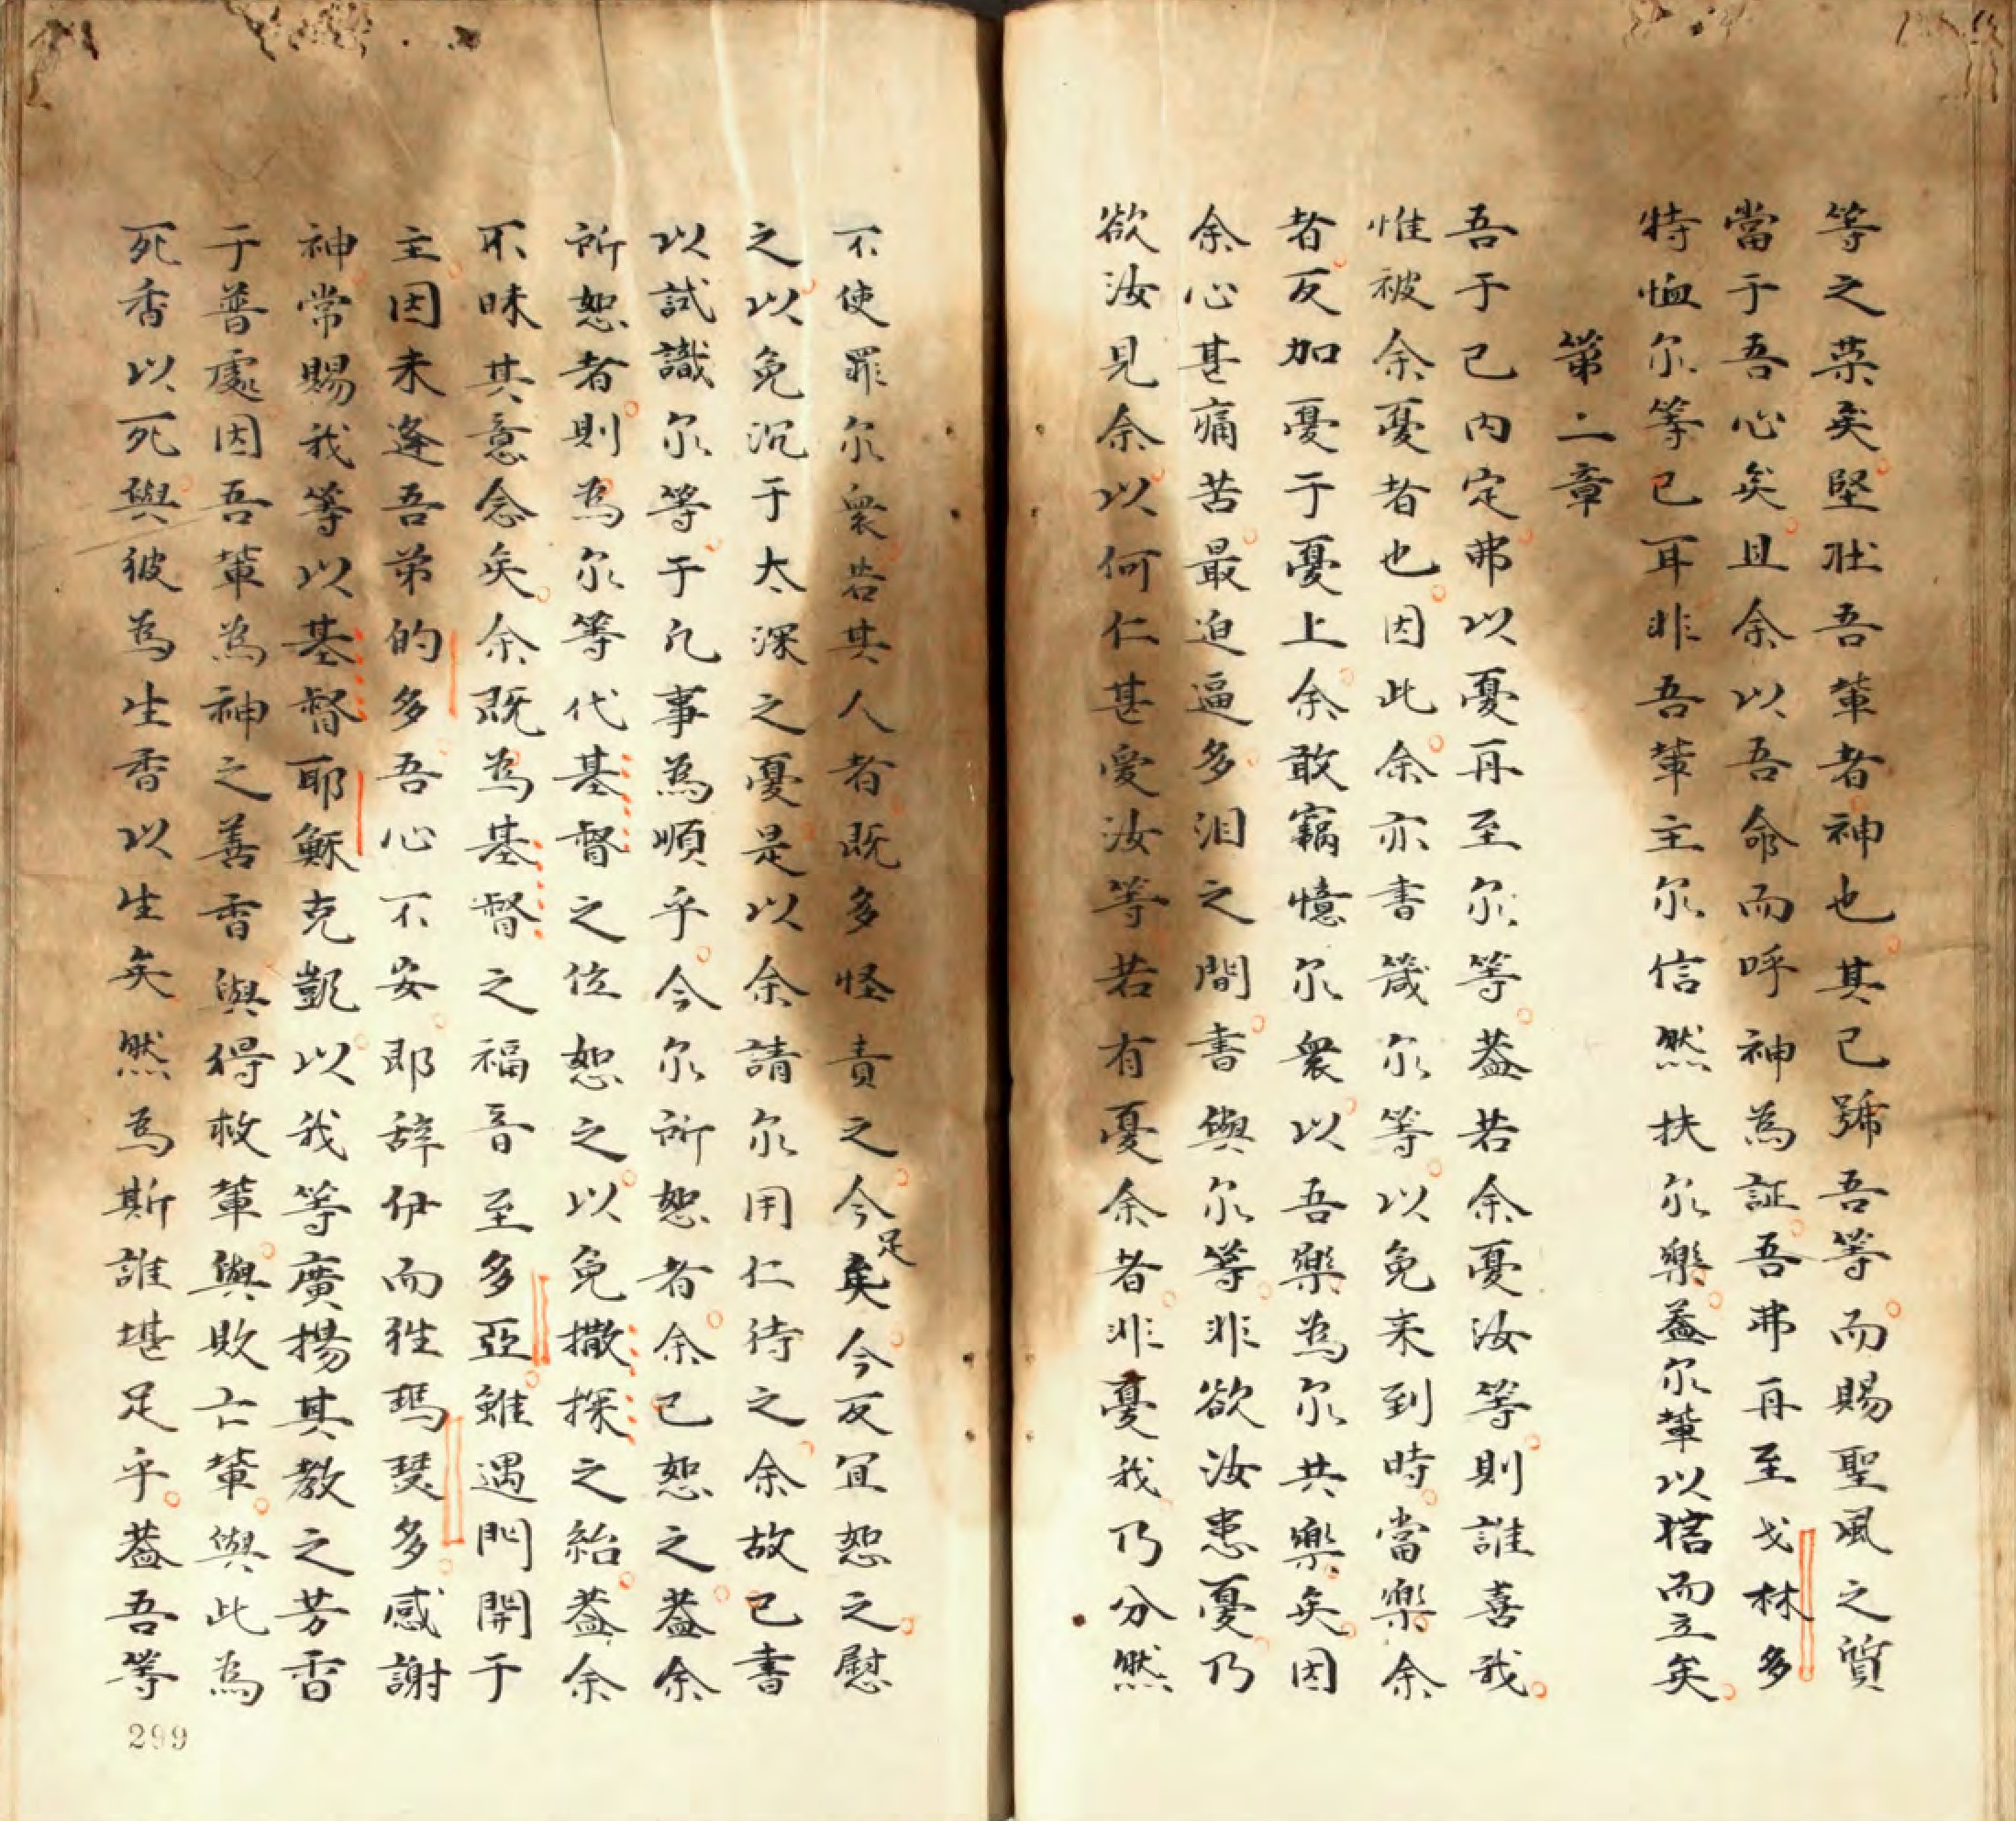 等之菜矣堅壯吾軰者神也其已號吾等而賜聖風之質
當于吾心矣且余以吾命而呼神為証吾弗再至戈林多
特恤尔等已耳非吾軰主尔信然扶尔樂葢尔軰以信而立矣
第二章
吾于己内定弗以憂再至尔等葢若余憂汝等則誰喜我
惟被余憂者也因此余亦書箴尔等以免来到時當樂余
者反加憂于憂上余敢竊憶尔衆以吾樂為尔共樂矣因
余心甚痛苦最迫逼多泪之間書與尔等非欲汝患憂乃
欲汝見余以何仁甚愛汝等若有憂余者非憂我乃分然
不使罪尔衆若其人者既多怪責之今足矣今反宜恕之慰
之以免沉于太深之憂是以余請尔用仁待之余故已書
以試識尔等于凢事為順乎今尔所恕者余已恕之葢余
所恕者則為尔等代基督之位恕之以免撒探之紿葢余
不昧其意念矣余既為基督之福音至多亞雖遇門開于
主因未逢吾弟的多吾心不安即辞伊而徃瑪瑟多感謝
神常賜我等以基督耶穌克凱以我等廣揚其教之芳香
于普處因吾軰為神之善香與得救軰與敗亡軰與此為
死香以死與彼為生香以生矣然為斯誰堪足乎葢吾等
299